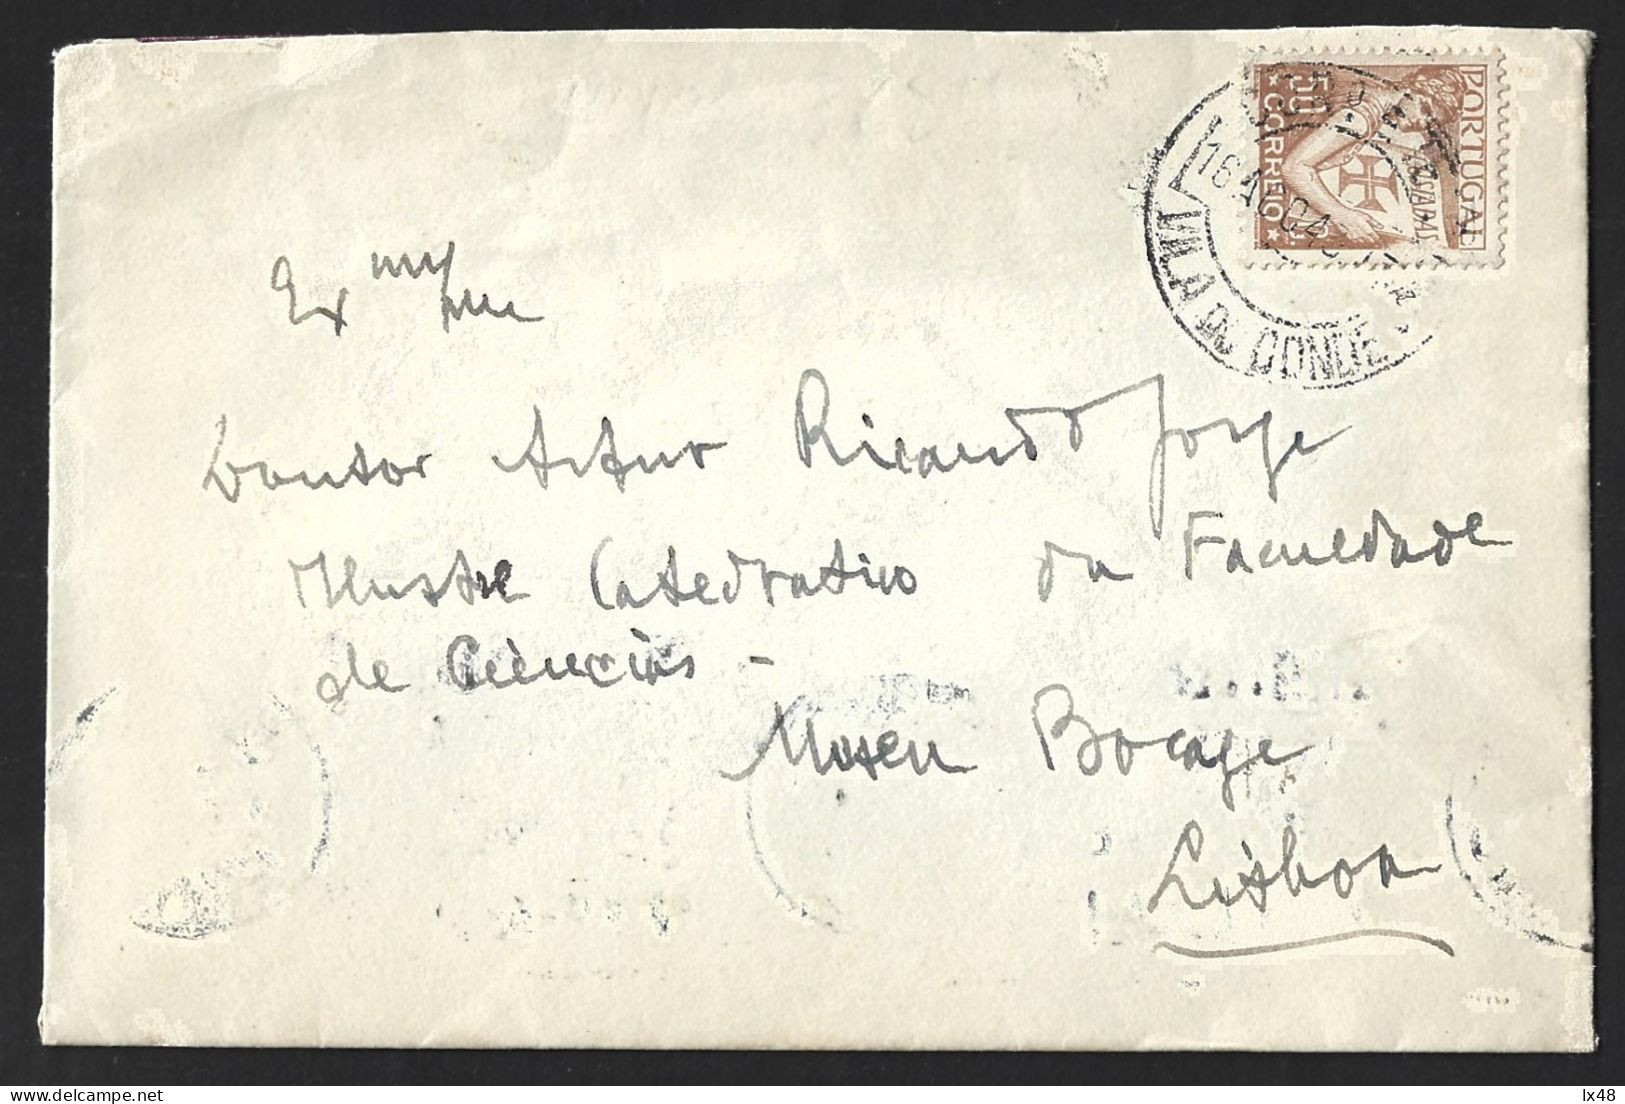 PORTUGAL
LUSIADAS
50 C.
★ CORREIO ★
16 AGO
VILA DO CONDE
Exmo
Doutor Artur Ricardo Jorge
Ilustre Catedratico da Faculdade
de Ciencias -
Museu Bocage
Lisboa
lx48